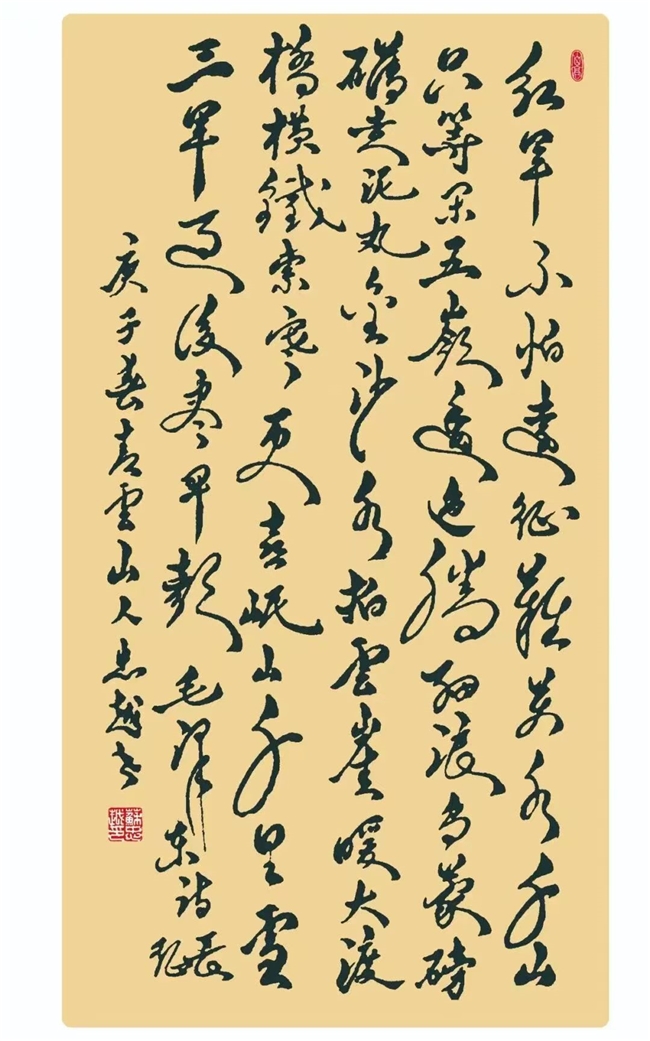 红军不怕遠征難万水千山
只等闲五嶺逶迤腾细浪乌蒙磅
礴走泥丸金沙水拍雲崖暖大渡
橋横鐵索寒更喜岷山千里雪
三军过後尽开颜毛泽东诗長征
庚子春青雲山人忠越书
蘇忠越印